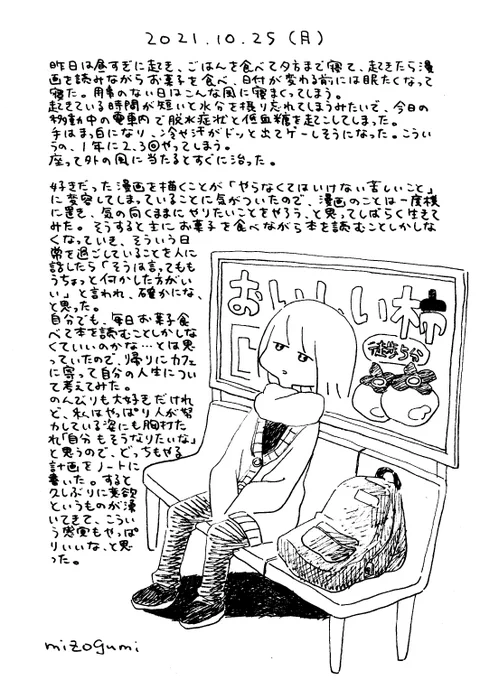 2021.10.25 (月)
昨日は昼すぎに起き、ごはんを食べて夕方まで寝て、起きたら漫
画を読みながらお菓子を食べ、日付が変わる前には眠たくなって
寝た。用事のない日はこんな風に寝まくってしまう。
起きている時間が短いと水分を摂り忘れてしまうみたいで、今日の
移動中の電車内で脱水症状と低血糖を起こしてしまった。
手はまっ白になり、冷や汗がドッと出てゲーしそうになった。こうい
うの、1年に2、3回やってしまう。
座って外の風に当たるとすぐに治った。
好きだった漫画を描くことが「やらなくてはいけない苦しいこと」
に変容してしまっていることに気がついたので、漫画のことは一度横
に置き、気の向くままにやりたいことをやろう、と思ってしばらく生きて
みた。そうすると主にお菓子を食べながら本を読むことしかしな
くなっていき、そういう日
常を過ごしていることを人に
話したら「そうは言っても
うちょっと何かした方がい
い」と言われ、確かにな、
と思った。
自分でも、毎日お菓子食
べて本を読むことしかしな
くていいのかな…とは思
っていたので、帰りにカフェ
に寄って自分の人生につい
て考えてみた。
のんびりも大好きだけれ
ど、私はやっぱり人が努
力している姿にも胸打た
れ「自分もそうなりたいな」
と思うので、どっちもやる
計画をノートに
書いた。すると
久しぶりに意欲
というものが湧
いてきて、こうい
う感覚もやっぱ
りいいな、と思
った。
おいしい柿
徒歩5分
mizogumi